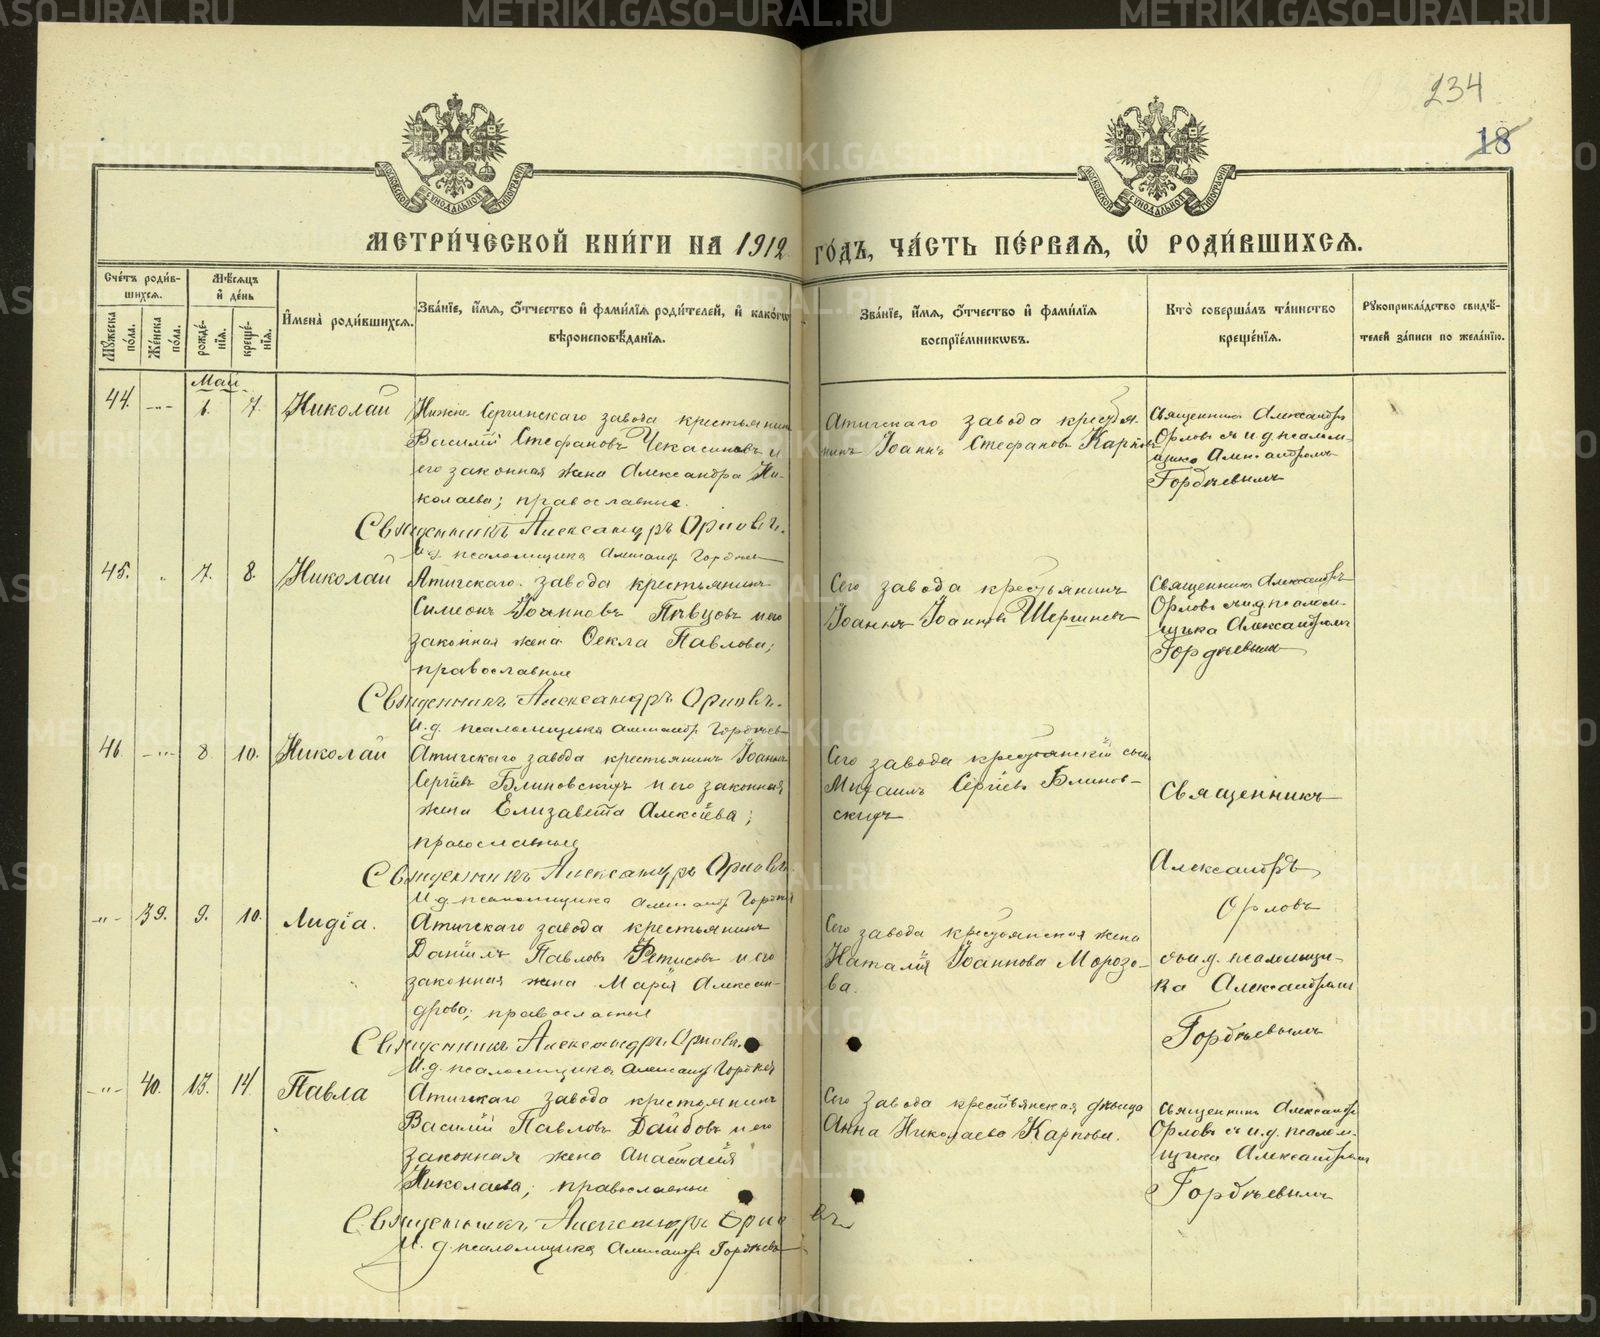 234
18
МОСКОВСКОЙ СѴНОДАЛЬНОЙ ТИПОГРАФІИ
МОСКОВСКОЙ СѴНОДАЛЬНОЙ ТИПОГРАФІИ
МЕТРИ́ЧЕСКОЙ КНИ́ГИ НА 1912 ГО́ДЪ, ЧА́СТЬ ПЕ́РВАЯ, Ѡ҆ РОДИ́ВШИХСЯ.
Сче́тъ роди́в-
шихся.
Му́жеска по́ла.
Же́нска по́ла.
Мѣ́сяцъ
и҆ де́нь
рожде́-
нїя.
креще́-
нїя.
И҆мена̀ роди́вшихся.
Зва́нїе, и҆́мя, ѻ҆́тчество и҆ фами́лїя роди́телей, и҆ како́гѡ
вѣроисповѣ́данїя.
Зва́нїе, и҆́мя, ѻ҆́тчество и҆ фами́лїя
воспрїе́мникѡвъ.
Кто̀ соверша́лъ та́инство
креще́нїя.
Рꙋкоприкла́дство свидѣ́-
телей за́писи по жела́нїю.
Май
44. -„- 6. 7. Николай
Нижне Сергинскаго завода крестьянин
Василій Стефановъ Чекасиновъ и
его законная жена Александра Ни-
колаева; православные.
Священникъ Александръ Орловъ.
И.д. псаломщика Александр Гордѣев
Атигскаго завода крестья-
нинъ Іоаннъ Стефановъ Карповъ
Священникъ Александръ
Орловъ съ и.д. псалом-
щика Александромъ
Гордѣевымъ
45. „ 7. 8. Николай
Атигскаго завода крестьянинъ
Симеонъ Іоанновъ Пѣвцовъ и его
законная жена Ѳекла Павлова;
православные
Священникъ Александръ Орловъ.
И.д. псаломщика Александр Гордѣев
Сего завода крестьянинъ
Іоаннъ Іоанновъ Шершневъ
Священникъ Александръ
Орловъ съ и.д. псалом-
щика Александромъ
Гордѣевымъ
46 -„- 8 10. Николай
Атигскаго завода крестьянинъ Іоаннъ
Сергіевъ Блиновскихъ и его законная
жена Елизавета Алексіева;
православные
Священникъ Александръ Орловъ
И.д. псаломщика Александр Гордѣев
Сего завода крестьянскій сынъ
Михаилъ Сергіевъ Блинов-
скихъ
Священникъ
Александръ
Орловъ
-„- 39. 9. 10. Лидія.
Атигскаго завода крестьянинъ
Даніилъ Павловъ Фетисовъ и его
законная жена Марія Алексан-
дрова; православные
Священникъ Александръ Орловъ.
И.д. псаломщика Александр Гордѣев
Сего завода крестьянская жена
Наталія Іоаннова Морозо-
ва.
съ и.д. псаломщи-
ка Александромъ
Гордѣевымъ
-„- 40. 13. 14. Павла
Атигскаго завода крестьянинъ
Василій Павловъ Даибовъ и его
законная жена Анастасія
Николаева; православные
Священникъ Александръ Орловъ
И.д. псаломщика Александр Гордѣевъ
Сего завода крестьянская дѣвица
Анна Николаева Карпова.
Священникъ Александръ
Орловъ съ и.д. псалом-
щика Александромъ
Гордѣевымъ
METRIKI.GASO-URAL.RU